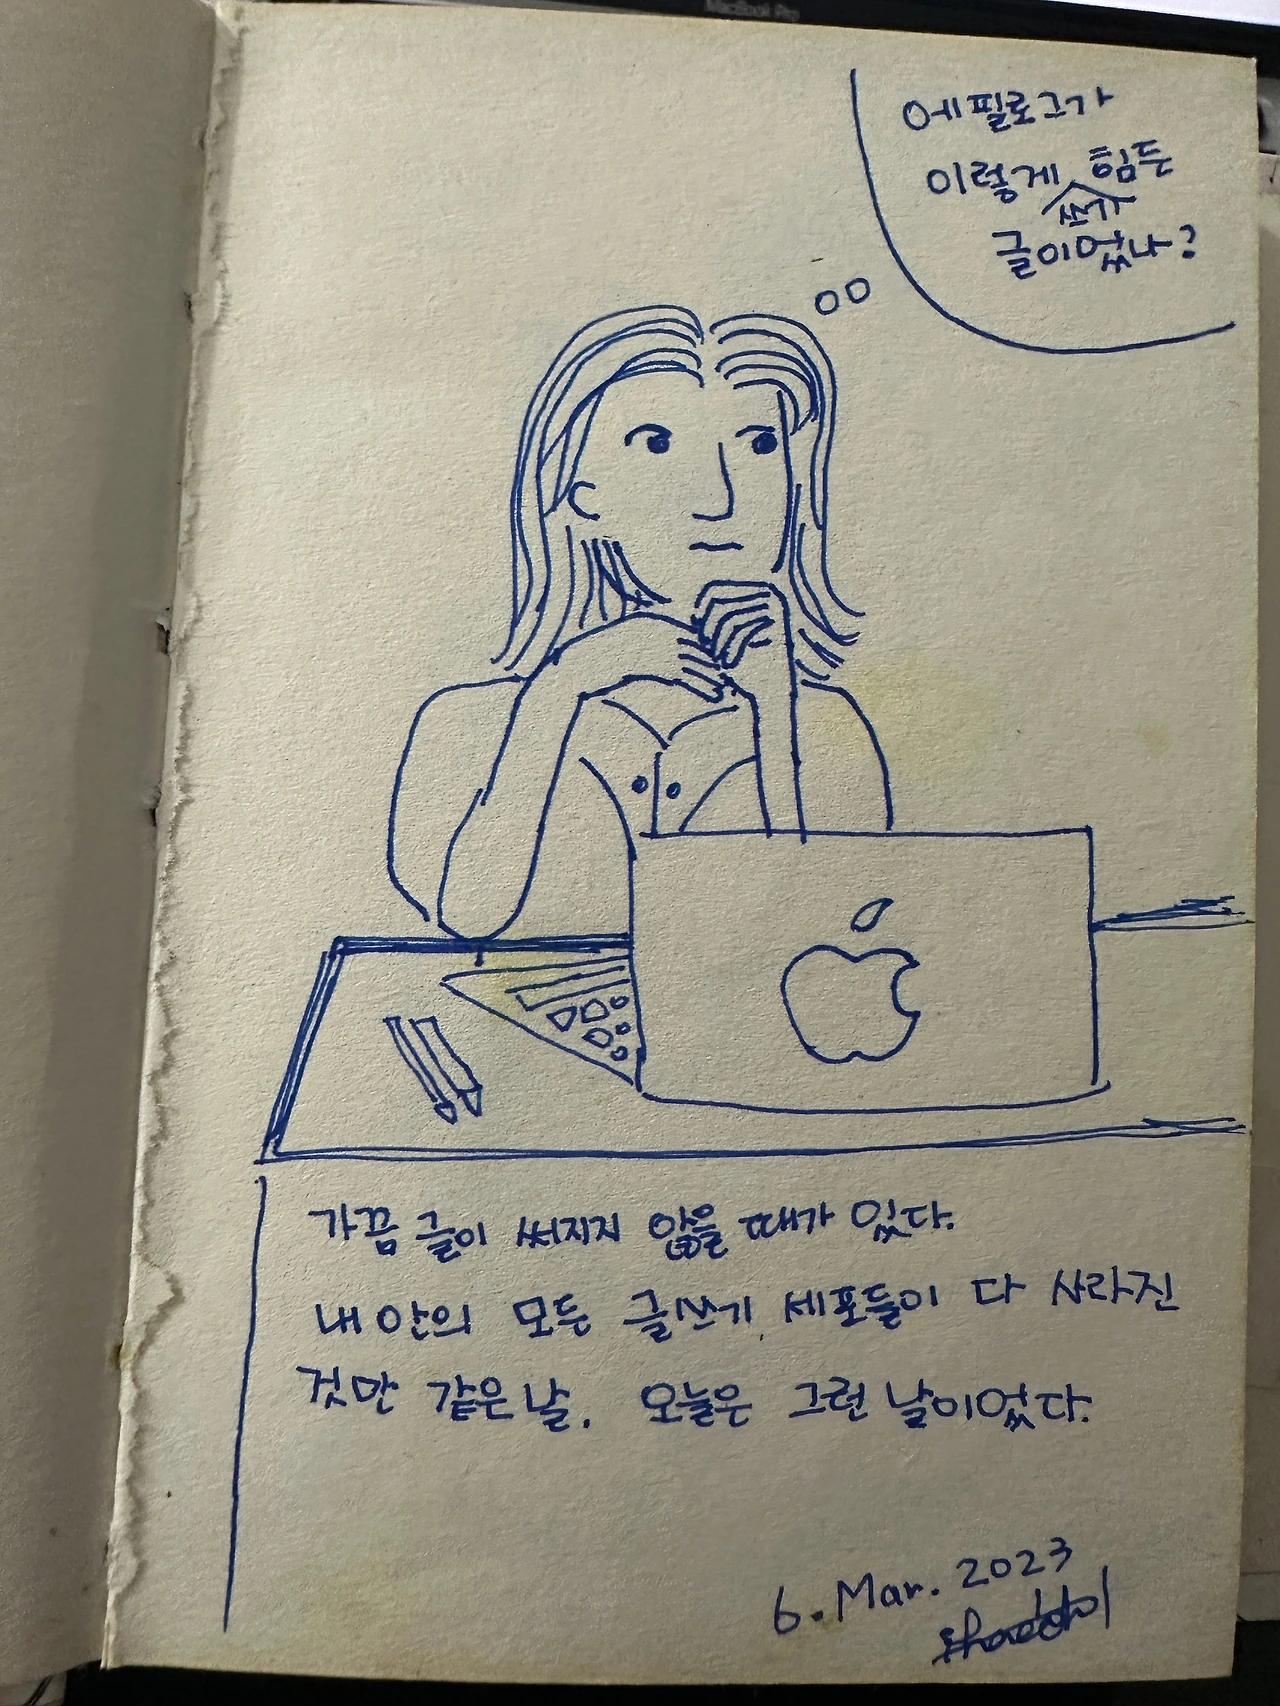 에필로그가
이렇게 쓰기 힘든
글이었나?
가끔 글이 써지지 않을 때가 있다.
내 안의 모든 글쓰기 세포들이 다 사라진
것만 같은 날. 오늘은 그런 날이었다.
6. Mar. 2023